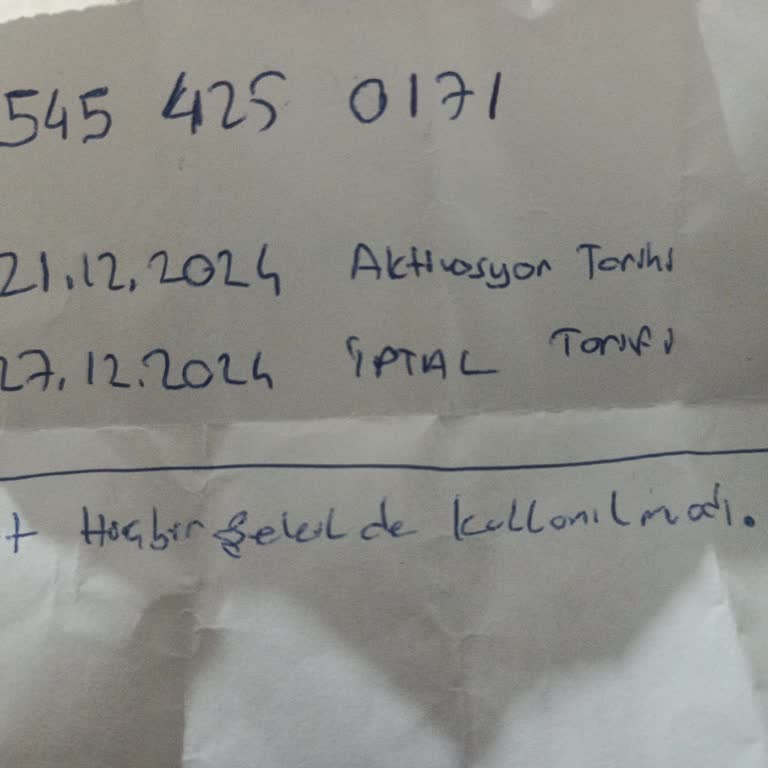 545 425 0171
21.12.2024 Aktivasyon Tarihi
27.12.2024 İPTAL Tarihi
+ Hiçbir Şekilde kullanılmadı.